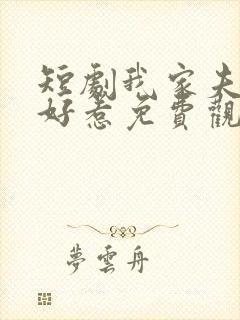 短劇我家夫
好惹免費觀
夢雲舟